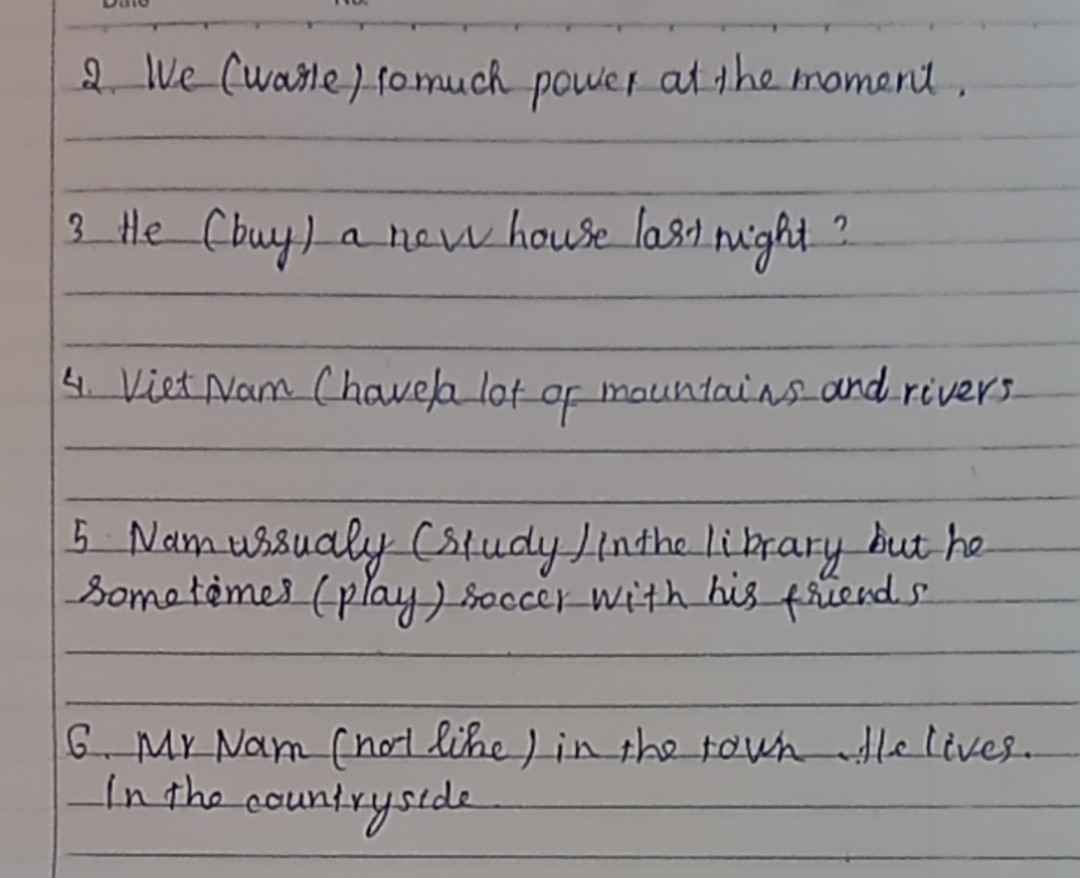 Date No.
2. We (waste) so much power at the moment.
3 He (buy) a new house last night?
4. Viet Nam (have)a lot of mountains and rivers
5. Nam ussualy (study) in the library but he
sometimes (play) soccer with his friends
6. Mr Nam (not like) in the town. He lives.
In the countryside.